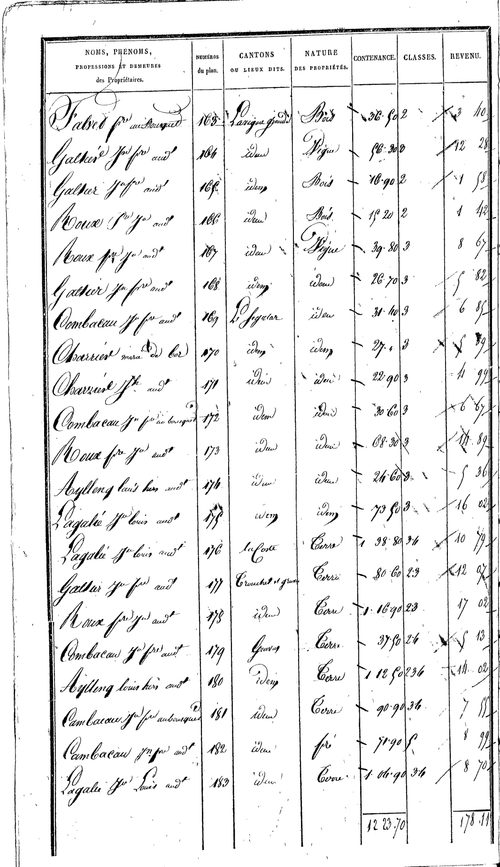 NOMS, PRÉNOMS, PROFESSIONS ET DEMEURES des Propriétaires. NUMÉROS du plan. CANTONS OU LIEUX DITS. NATURE DES PROPRIÉTÉS. CONTENANCE. CLASSES. REVENU.
fre au bousquet 163 Bois 36.50 2 3 40
Galtier Jn fre audt 164 idem Vigne 56.30 3 12 28
Galtier Jn fre audt 165 idem Bois 16.90 2 1 58
Roux fre Jn audt 166 idem Bois 15 20 2 1 42
Roux fre Jn audt 167 idem Vigne 39.80 3 8 67
Galtier Jn fre audt 168 idem idem 26 70 3 5 82
Combacau Jn fre audt 169 idem 31.40 3 6 85
Charrier 170 idem idem 27 3 5 89
Charrier Jh audt 171 idem idem 22.90 3 4 99
Combacau Jn fre au bousquet 172 idem idem 30 60 3 6 67
Roux fre Jn audt 173 idem idem 68.30 3 14 89
louis hers audt 174 idem idem 24 60 3 5 36
Lagalie Jn louis audt 175 idem idem 73 50 3 16 02
Lagalie Jn louis audt 176 la Coste Terre 1 38 80 34 10 79
Galtier Jn fre audt 177 Terre 80 60 23 12 07
Roux fre Jn audt 178 idem Terre 1.16 90 23 17 02
Combacau Jn fre audt 179 Graves Terre 37 50 24 5 13
louis hers audt 180 idem Terre 1 12 50 234 14 02
Combacau Jn fre au bousquet 181 idem Terre 90.90 34 7
Combacau Jn fre audt 182 idem pré 71.90 5 8 99
Lagalie Jn Louis audt 183 idem Terre 1.04.90 34 8 70
12 23.70 178.11